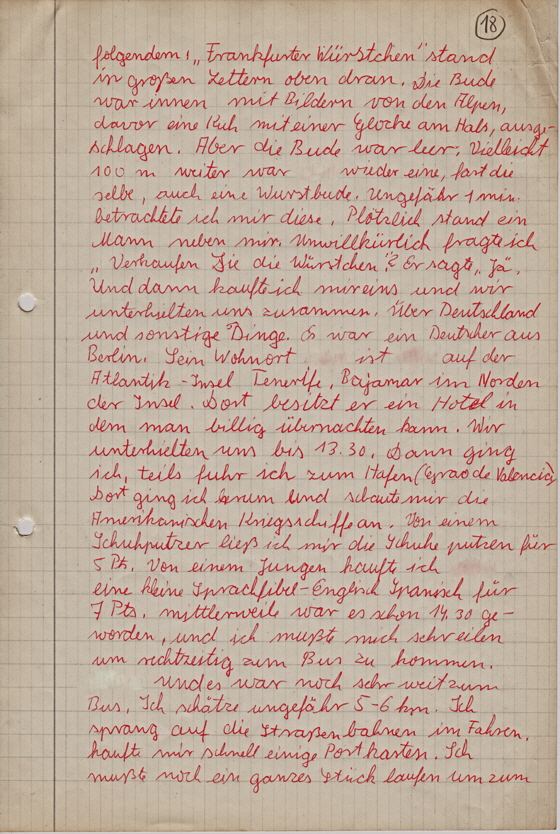 18
folgendem: „Frankfurter Würstchen" stand
in großen Lettern oben dran. Die Bude
war innen mit Bildern von den Alpen,
davor eine Kuh mit einer Glocke am Hals, ausge-
schlagen. Aber die Bude war leer. Vielleicht
100 m weiter war wieder eine, fast die
selbe, auch eine Wurstbude. Ungefähr 1 min.
betrachtete ich mir diese. Plötzlich stand ein
Mann neben mir. Unwillkürlich fragte ich
„Verkaufen Sie die Würstchen"? Er sagte „Ja".
Und dann kaufte ich mir eins und wir
unterhielten uns zusammen. Über Deutschland
und sonstige Dinge. Es war ein Deutscher aus
Berlin. Sein Wohnort ist auf der
Atlantik-Insel Tenerife, Bajamar im Norden
der Insel. Dort besitzt er ein Hotel in
dem man billig übernachten kann. Wir
unterhielten uns bis 13.30. Dann ging
ich, teils fuhr ich zum Hafen (Grao de Valencia)
Dort ging ich herum und schaute mir die
Amerikanischen Kriegsschiffe an. Von einem
Schuhputzer ließ ich mir die Schuhe putzen für
5 Pts. Von einem Jungen kaufte ich
eine kleine Sprachfibel-Englisch Spanisch für
7 Pts. mittlerweile war es schon 14.30 ge-
worden, und ich mußte mich sehr eilen
um rechtzeitig zum Bus zu kommen.
Und es war noch sehr weit zum
Bus. Ich schätze ungefähr 5-6 km. Ich
sprang auf die Straßenbahnen im Fahren,
kaufte mir schnell einige Postkarten. Ich
mußte noch ein ganzes Stück laufen um zum